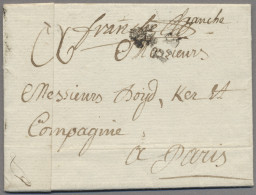 franche franche
Messieurs
Messieurs Boyd, Ker &
Compagnie
a Paris